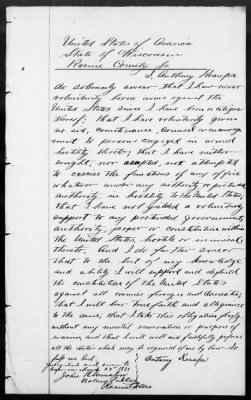 United States of America
State of Wisconsin
Racine County ss.
I, Anthony
do solemnly swear that I have never
voluntarily borne arms against the
United States since I have been a citizen
thereof; that I have voluntarily given
no aid, countenance, counsel or encourage
ment to persons engaged in armed
hostility thereto; that I have neither
sought, nor accepted, nor attempted
to exercise the functions of any office
whatever under any authority or pretended
authority in hostility to the United States;
that I have not yielded a voluntary
support to any pretended government,
authority, power or constitution within
the United States, hostile or inimical
thereto. And I do further swear
that to the best of my knowledge
and ability I will support and defend
the constitution of the United States
against all enemies foreign and domestic;
that I will bear true faith and allegiance
to the same; that I take this obligation freely
without any mental reservation or purpose of
evasion, and that I will well and faithfully perform
all the duties which may be required of me by law. So
help me God.
Subscribed and sworn to
before me
John
Notary Public
Racine